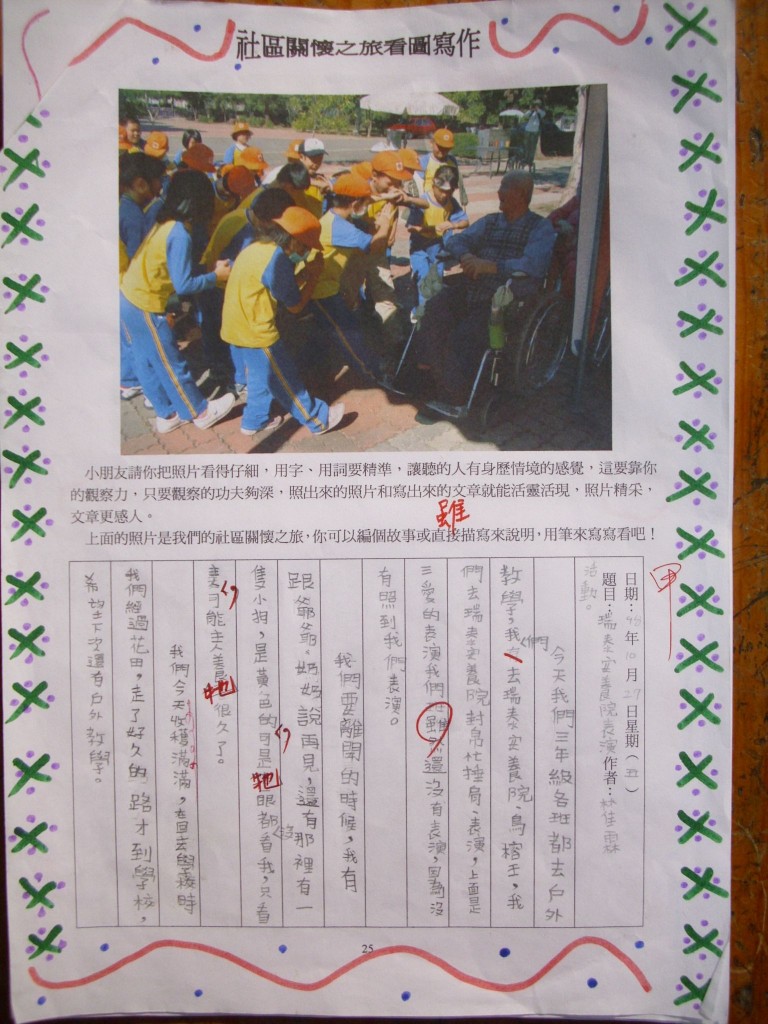 社區關懷之旅看圖寫作
小朋友請你把照片看得仔細，用字、用詞要精準，讓聽的人有身歷情境的感覺，這要靠你
的觀察力，只要觀察的功夫夠深，照出來的照片和寫出來的文章就能活靈活現，照片精采，
文章更感人。
上面的照片是我們的社區關懷之旅，你可以編個故事或直接描寫來說明，用筆來寫寫看吧！
雖
甲
日期：98年10月27日星期（五）
題目：瑞泰安養院表演作者：林佳霖
活動。
今天我們三年級各班都去戶外
教學，我們去瑞泰安養院、鳥榕王，我
們去瑞泰安養院封帛杜捶肩、表演，上面是
三愛的表演我們班雖然還沒有表演，因為沒
有照到我們表演。
我們要離開的時候，我有
跟爺爺、奶奶說再見，還有那裡有一
隻小狗，是黃色的可是牠眼都看我，只看
美可能主人養牠很久了。
我們今天收穫滿滿，在回去學校時
我們經過花田，走了好久的路才到學校，
希望下次還有戶外教學。
25